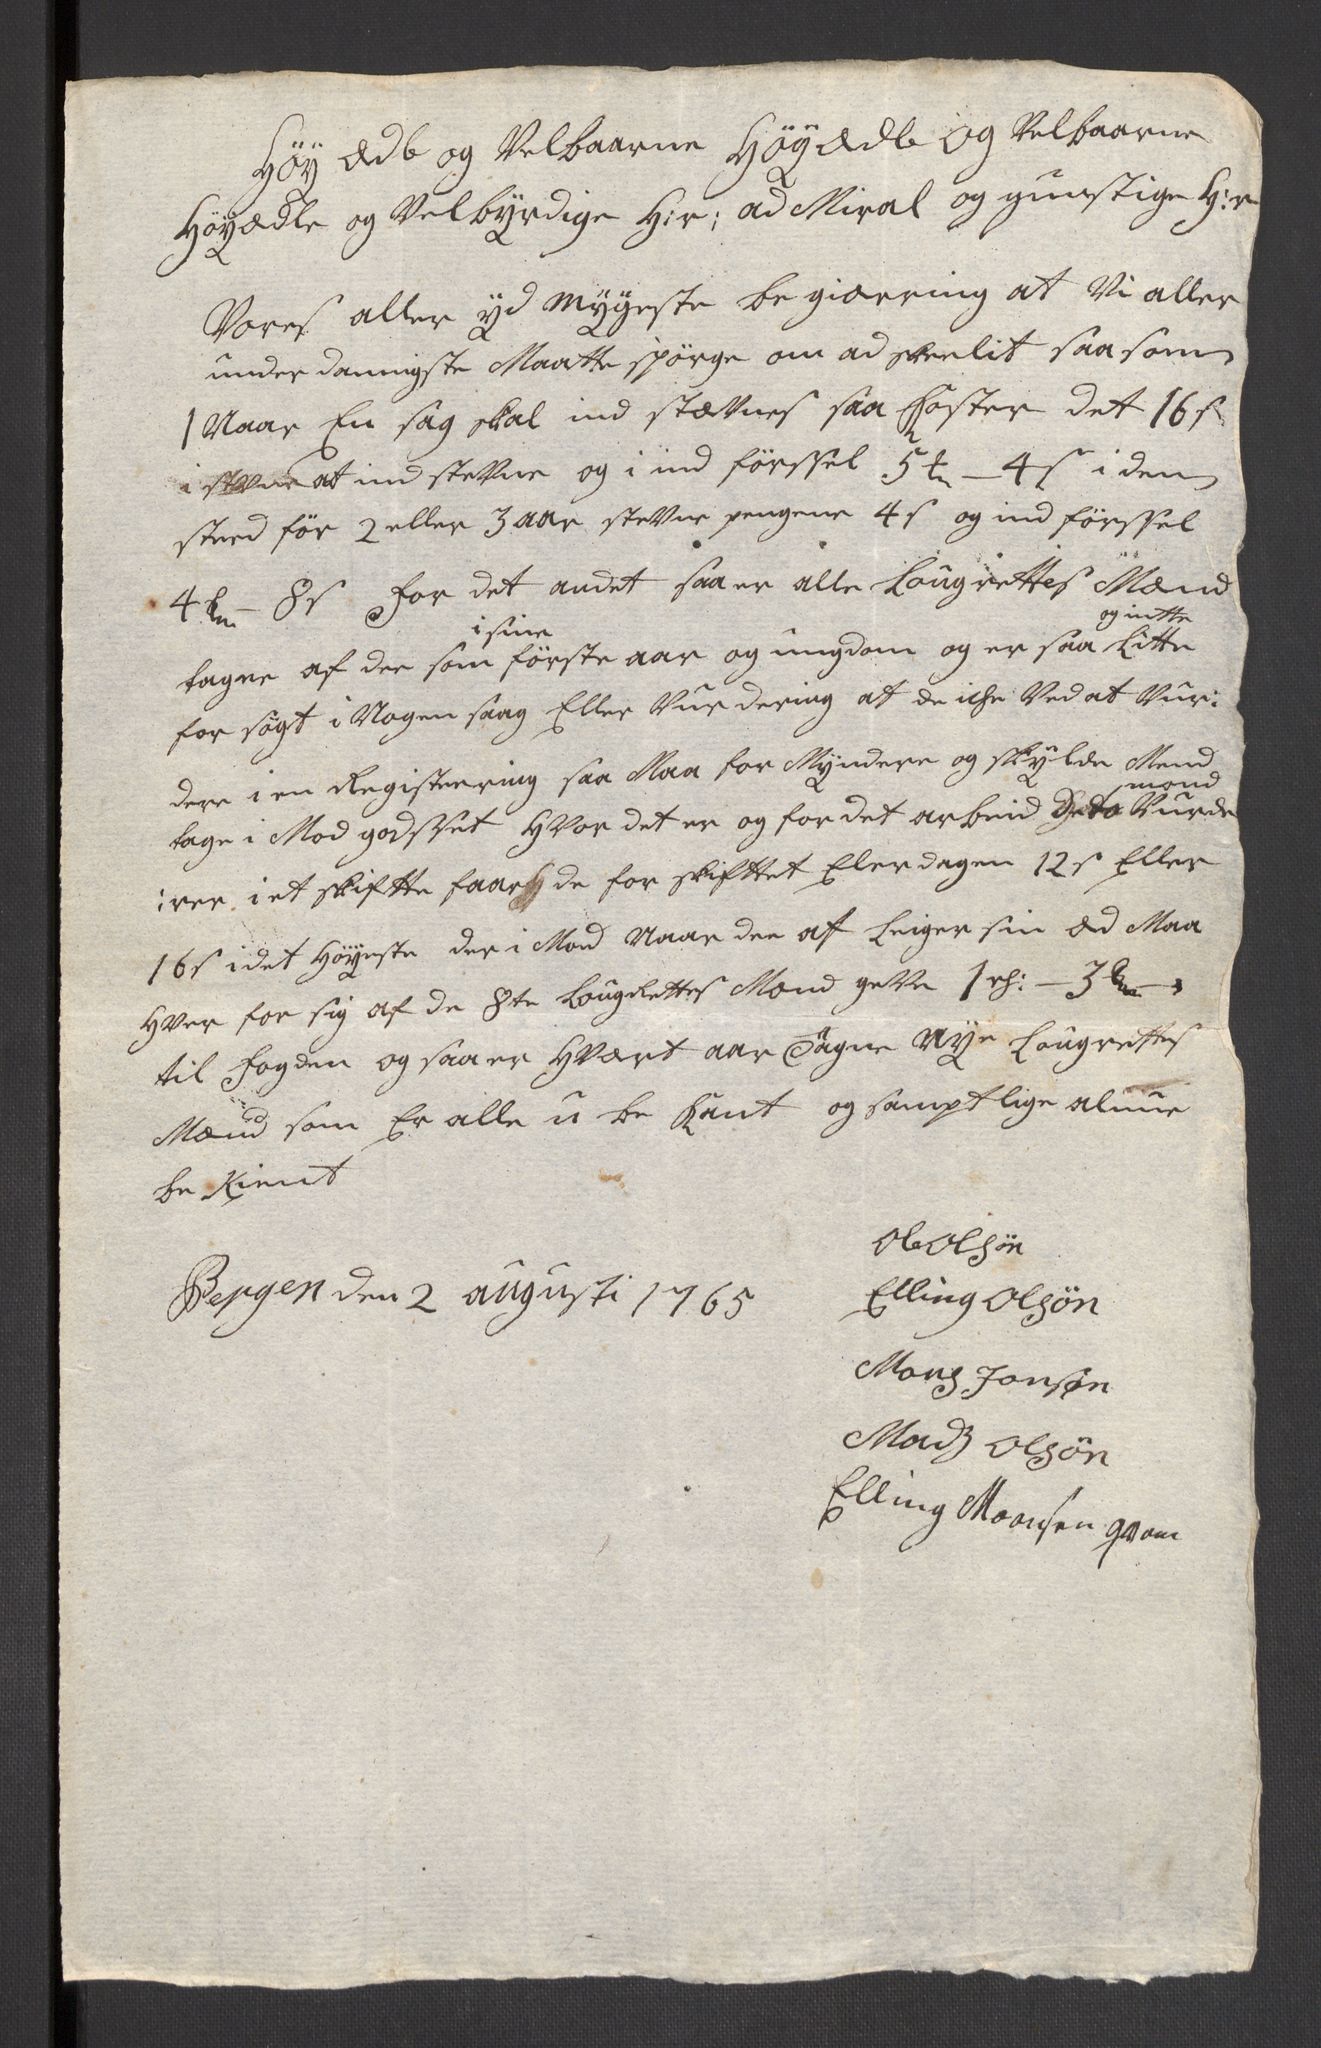 Höÿ ædle og Velbaarne Höÿædle og Velbaarne
Höÿædle og Velbÿrdige H:r: ad Miral og gunstige H:r
Vores aller ÿd Mÿgeste be giæring at Vi aller
under dannigste Maatte spörge om ad skeelit saa som
1 Naar En sag skal ind stævnes saa koster det 16 s
i at ind stevne og i ind förssel 5 - 4 s i den
sted för 2 eller 3 aar stevne pengene 4 s og ind förssel
4 - 8 s For det andet saa er alle Lougrettes Mænd
i sine og intte
tagne af dee som förste aar og ungdom og er saa Litte
for sögt i Nogen saag Eller Vurdering at de iche Ved at Vur:
dere i en Registeering saa Maa for Mÿndere og skÿlde Mend
mond
tage i Mod godsset Hvor det er og for det arbeid Vurde
:rer i et skiftte faar de for skifttet Eler dagen 12 s Eller
16 s i det Höÿeste der i Mod Naar dee af Leiger sin æd Maa
Hver for sig af de 8te Lougrettes Mænd geve 1 rh: - 3
til Fogden og saa er Hvært aar Tagne Nÿe Lougrettes
Mænd som Er alle u be kant og samptlige almue
be Kient
Bergen den 2 augusti 1765
Ole Olsön
Elling Olsön
Mons Jonsøn
Mads Olsön
Elling Monsen qvam